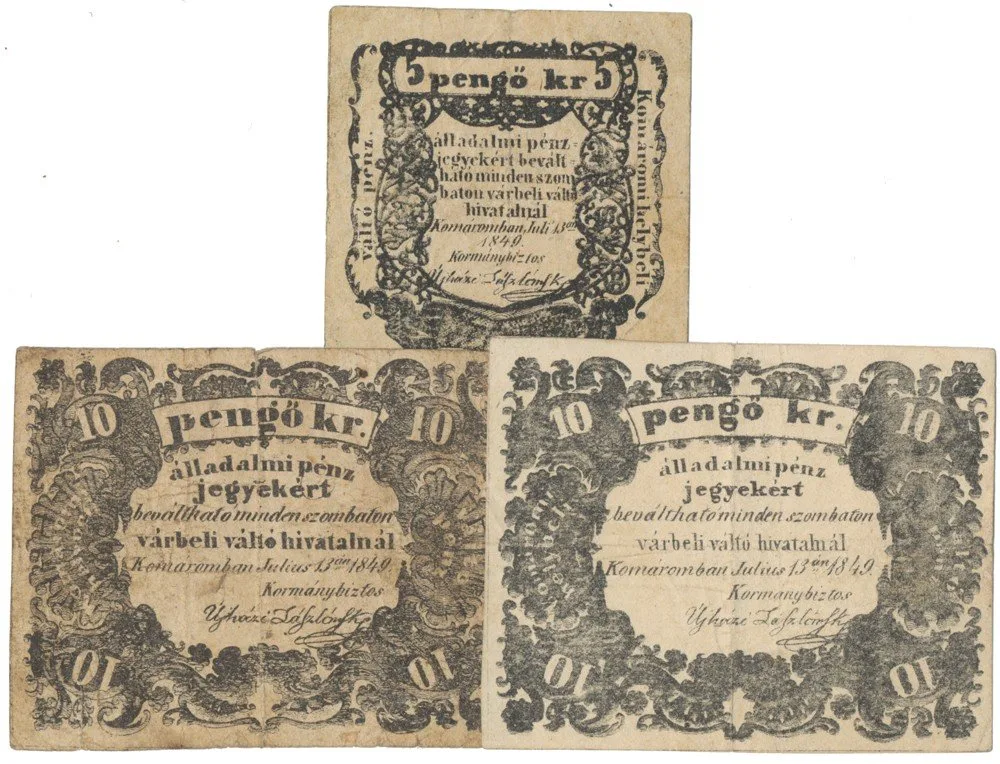 5 pengő kr 5
váltó pénz.
álladalmi pénz-
jegyekért bevált-
ható minden szom
baton várbeli váltó
hivatalnál
Komáromban Juli 13án
1849.
Kormánybiztos
Újházi László mk
Komáromi helybeli
10 pengő kr. 10
álladalmi pénz
jegyekért
beváltható minden szombaton
várbeli váltó hivatalnál
Komaromban Julius 13án 1849.
Kormánybiztos
Újházi László mk
10 10
10 pengő kr. 10
álladalmi pénz
jegyekért
beváltható minden szombaton
várbeli váltó hivatalnál
Komaromban Julius 13án 1849.
Kormánybiztos
Újházi László mk
helybeli
10 10